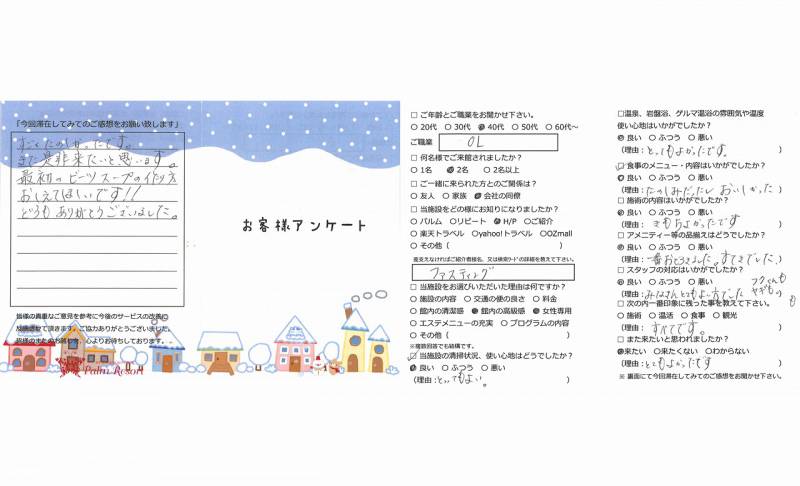 「今回滞在してみてのご感想をお願い致します」
すごくたのしかったです。
また是非来たいと思います。
最初のビーツスープの作り方
おしえてほしいです!!
どうもありがとうございました。
皆様の貴重なご意見を参考に今後のサービスの改善に
反映させて頂きます。ご協力ありがとうございました。
皆様のまたのお越しを、心よりお待ちしております。
Palm Resort
お客様アンケート
□ ご年齢とご職業をお聞かせ下さい。
○ 20代 ○ 30代 ○ 40代 ○ 50代 ○ 60代~
ご職業 OL
□ 何名様でご来館されましたか?
○ 1名 ○ 2名 ○ 2名以上
□ ご一緒に来られた方とのご関係は?
○ 友人 ○ 家族 ○ 会社の同僚
□ 当施設をどの様にお知りになりましたか?
○ パルム ○リピート ○ H/P ○ご紹介
○ 楽天トラベル ○yahoo!トラベル ○OZmall
○ その他( )
差支えなければご紹介者様名、又は検索ワードの詳細を教えて下さい。
ファスティング
□ 当施設をお選びいただいた理由は何ですか?
○ 施設の内容 ○ 交通の便の良さ ○ 料金
○ 館内の清潔感 ○ 館内の高級感 ○ 女性専用
○ エステメニューの充実 ○ プログラムの内容
○ その他( )
※複数回答でも結構です。
□ 当施設の清掃状況、使い心地はどうでしたか?
○ 良い ○ ふつう ○ 悪い
(理由:とってもよい。 )
□温泉、岩盤浴、ゲルマ温浴の雰囲気や温度
使い心地はいかがでしたか?
○ 良い ○ ふつう ○ 悪い
(理由:とってもよかったです。 )
□ 食事のメニュー・内容はいかがでしたか?
○ 良い ○ ふつう ○ 悪い
(理由:たのしみだったし おいしかった )
□ 施術の内容はいかがでしたか?
○ 良い ○ ふつう ○ 悪い
(理由: きもちよかったです )
□ アメニティー等の品揃えはどうでしたか?
○ 良い ○ ふつう ○ 悪い
(理由: 一番おどろきました。すてきでした。 )
□ スタッフの対応はいかがでしたか?
○ 良い ○ ふつう ○ 悪い
(理由:みなさんとてもよい方でした )
□ 次の内一番印象に残った事を教えて下さい。
○ 施術 ○ 温活 ○ 食事 ○ 観光
(理由: すべてです。 )
□ また来たいと思われましたか?
○来たい ○ 来たくない ○わからない
(理由:とてもよかったです )
※ 裏面にて今回滞在してみてのご感想をお聞かせ下さい。